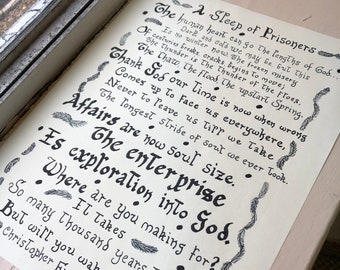 A Sleep of Prisoners
The human heart can go the lengths of God.
Dark and cold we may be but this
Is no winter now. The frozen misery
Of centuries breaks cracks begins to move;
The thunder is the thunder of the floes,
The thaw, the flood the upstart Spring.
Thank God our time is now when wrong
Comes up to face us everywhere,
Never to leave us till we take
The longest stride of soul we ever took.
Affairs are now soul size.
The enterprise
Is exploration into God.
Where are you making for?
It takes
So many thousand years to
But will you wake
Christopher